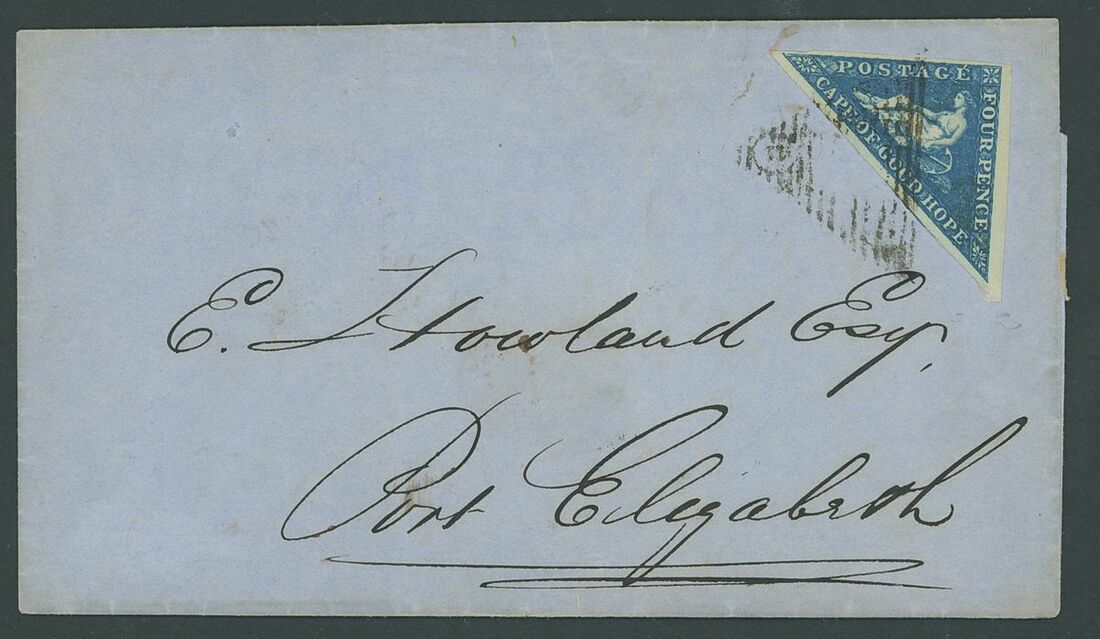 POSTAGE
FOUR PENCE
CAPE OF GOOD HOPE
E. Howland Esq.
Port Elizabeth